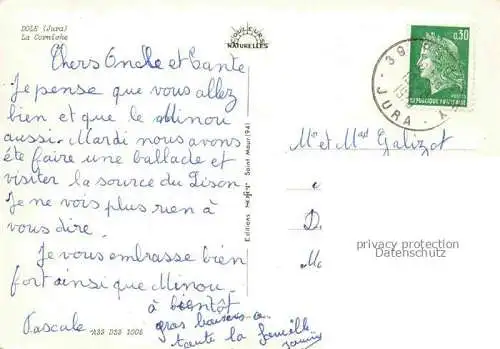 DOLE (Jura)
La Corniche
COULEURS
NATURELLES
Chers Oncle et Tante
Je pense que vous allez
bien et que le Minou
aussi. Mardi nous avons
été faire une ballade et
visiter la source du Lison
Je ne vois plus rien à
vous dire.
Je vous embrasse bien
fort ainsi que Minou.
à bientôt
Pascale
gros baisers a
toute la famille
Editions
Saint-Maur (94)
0,30
POSTES
REPUBLIQUE FRANCAISE
39
JURA
Mr et Mme Galizot
D.
M
privacy protection
Datenschutz